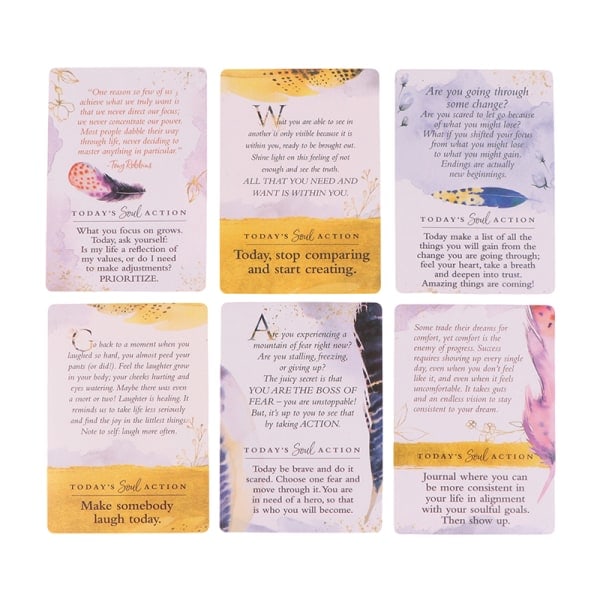 "One reason so few of us
achieve what we truly want is
that we never direct our focus;
we never concentrate our power.
Most people dabble their way
through life, never deciding to
master anything in particular."
-Tony Robbins
TODAY'S Soul ACTION
What you focus on grows.
Today, ask yourself:
Is my life a reflection of
my values, or do I need
to make adjustments?
PRIORITIZE.
What you are able to see in
another is only visible because it is
within you, ready to be brought out.
Shine light on this feeling of not
enough and see the truth.
ALL THAT YOU NEED AND
WANT IS WITHIN YOU.
TODAY'S Soul ACTION
Today, stop comparing
and start creating.
Are you going through
some change?
Are you scared to let go because
of what you might lose?
What if you shifted your focus
from what you might lose
to what you might gain.
Endings are actually
new beginnings.
TODAY'S Soul ACTION
Today make a list of all the
things you will gain from the
change you are going through;
feel your heart, take a breath
and deepen into trust.
Amazing things are coming!
Go back to a moment when you
laughed so hard, you almost peed your
pants (or did!). Feel the laughter grow
in your body; your cheeks hurting and
eyes watering. Maybe there was even
a snort or two! Laughter is healing. It
reminds us to take life less seriously
and find the joy in the littlest things.
Note to self: laugh more often.
TODAY'S Soul ACTION
Make somebody
laugh today.
Are you experiencing a
mountain of fear right now?
Are you stalling, freezing,
or giving up?
The juicy secret is that
YOU ARE THE BOSS OF
FEAR – you are unstoppable!
But, it's up to you to see that
by taking ACTION.
TODAY'S Soul ACTION
Today be brave and do it
scared. Choose one fear and
move through it. You are
in need of a hero, so that
is who you will become.
Some trade their dreams for
comfort, yet comfort is the
enemy of progress. Success
requires showing up every single
day, even when you don't feel
like it, and even when it feels
uncomfortable. It takes guts
and an endless vision to stay
consistent to your dream.
TODAY'S Soul ACTION
Journal where you can
be more consistent in
your life in alignment
with your soulful goals.
Then show up.